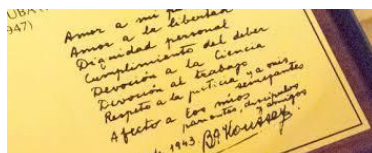 UBA
1947)
Amor a mi
Amor a la libertad
Dignidad personal
Cumplimiento del deber
Devoción a la Ciencia
Devoción al trabajo
Respeto a la justicia y a mis
semejantes
Afecto a los míos
parientes, discípulos
y amigos
1943. B. A. Houssay